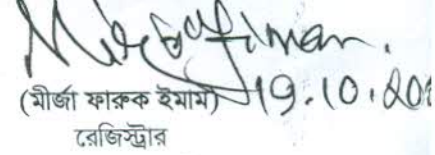 (মীর্জা ফারুক ইমাম) 19.10.20
রেজিস্ট্রার